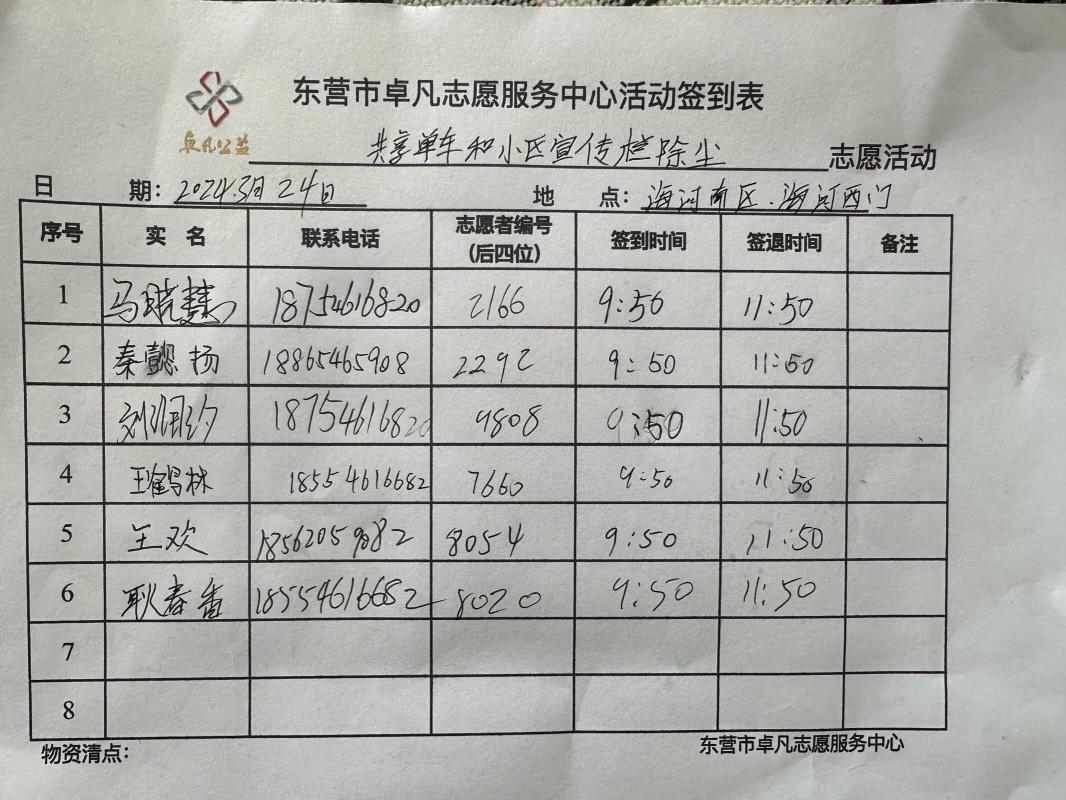 东营市卓凡志愿服务中心活动签到表
卓凡公益
共享单车和小区宣传栏除尘 志愿活动
日期：2024.3月24日 地点：海河南区.海河西门
序号 实名 联系电话 志愿者编号(后四位) 签到时间 签退时间 备注
1 马晓慧 18754616820 2166 9:50 11:50
2 秦懿扬 18865465908 2292 9:50 11:50
3 刘 18754616820 9808 9:50 11:50
4 王鹤林 18554616682 7660 9:50 11:50
5 王欢 18562059082 8054 9:50 11:50
6 耿春香 18554616682 8020 9:50 11:50
7
8
物资清点： 东营市卓凡志愿服务中心